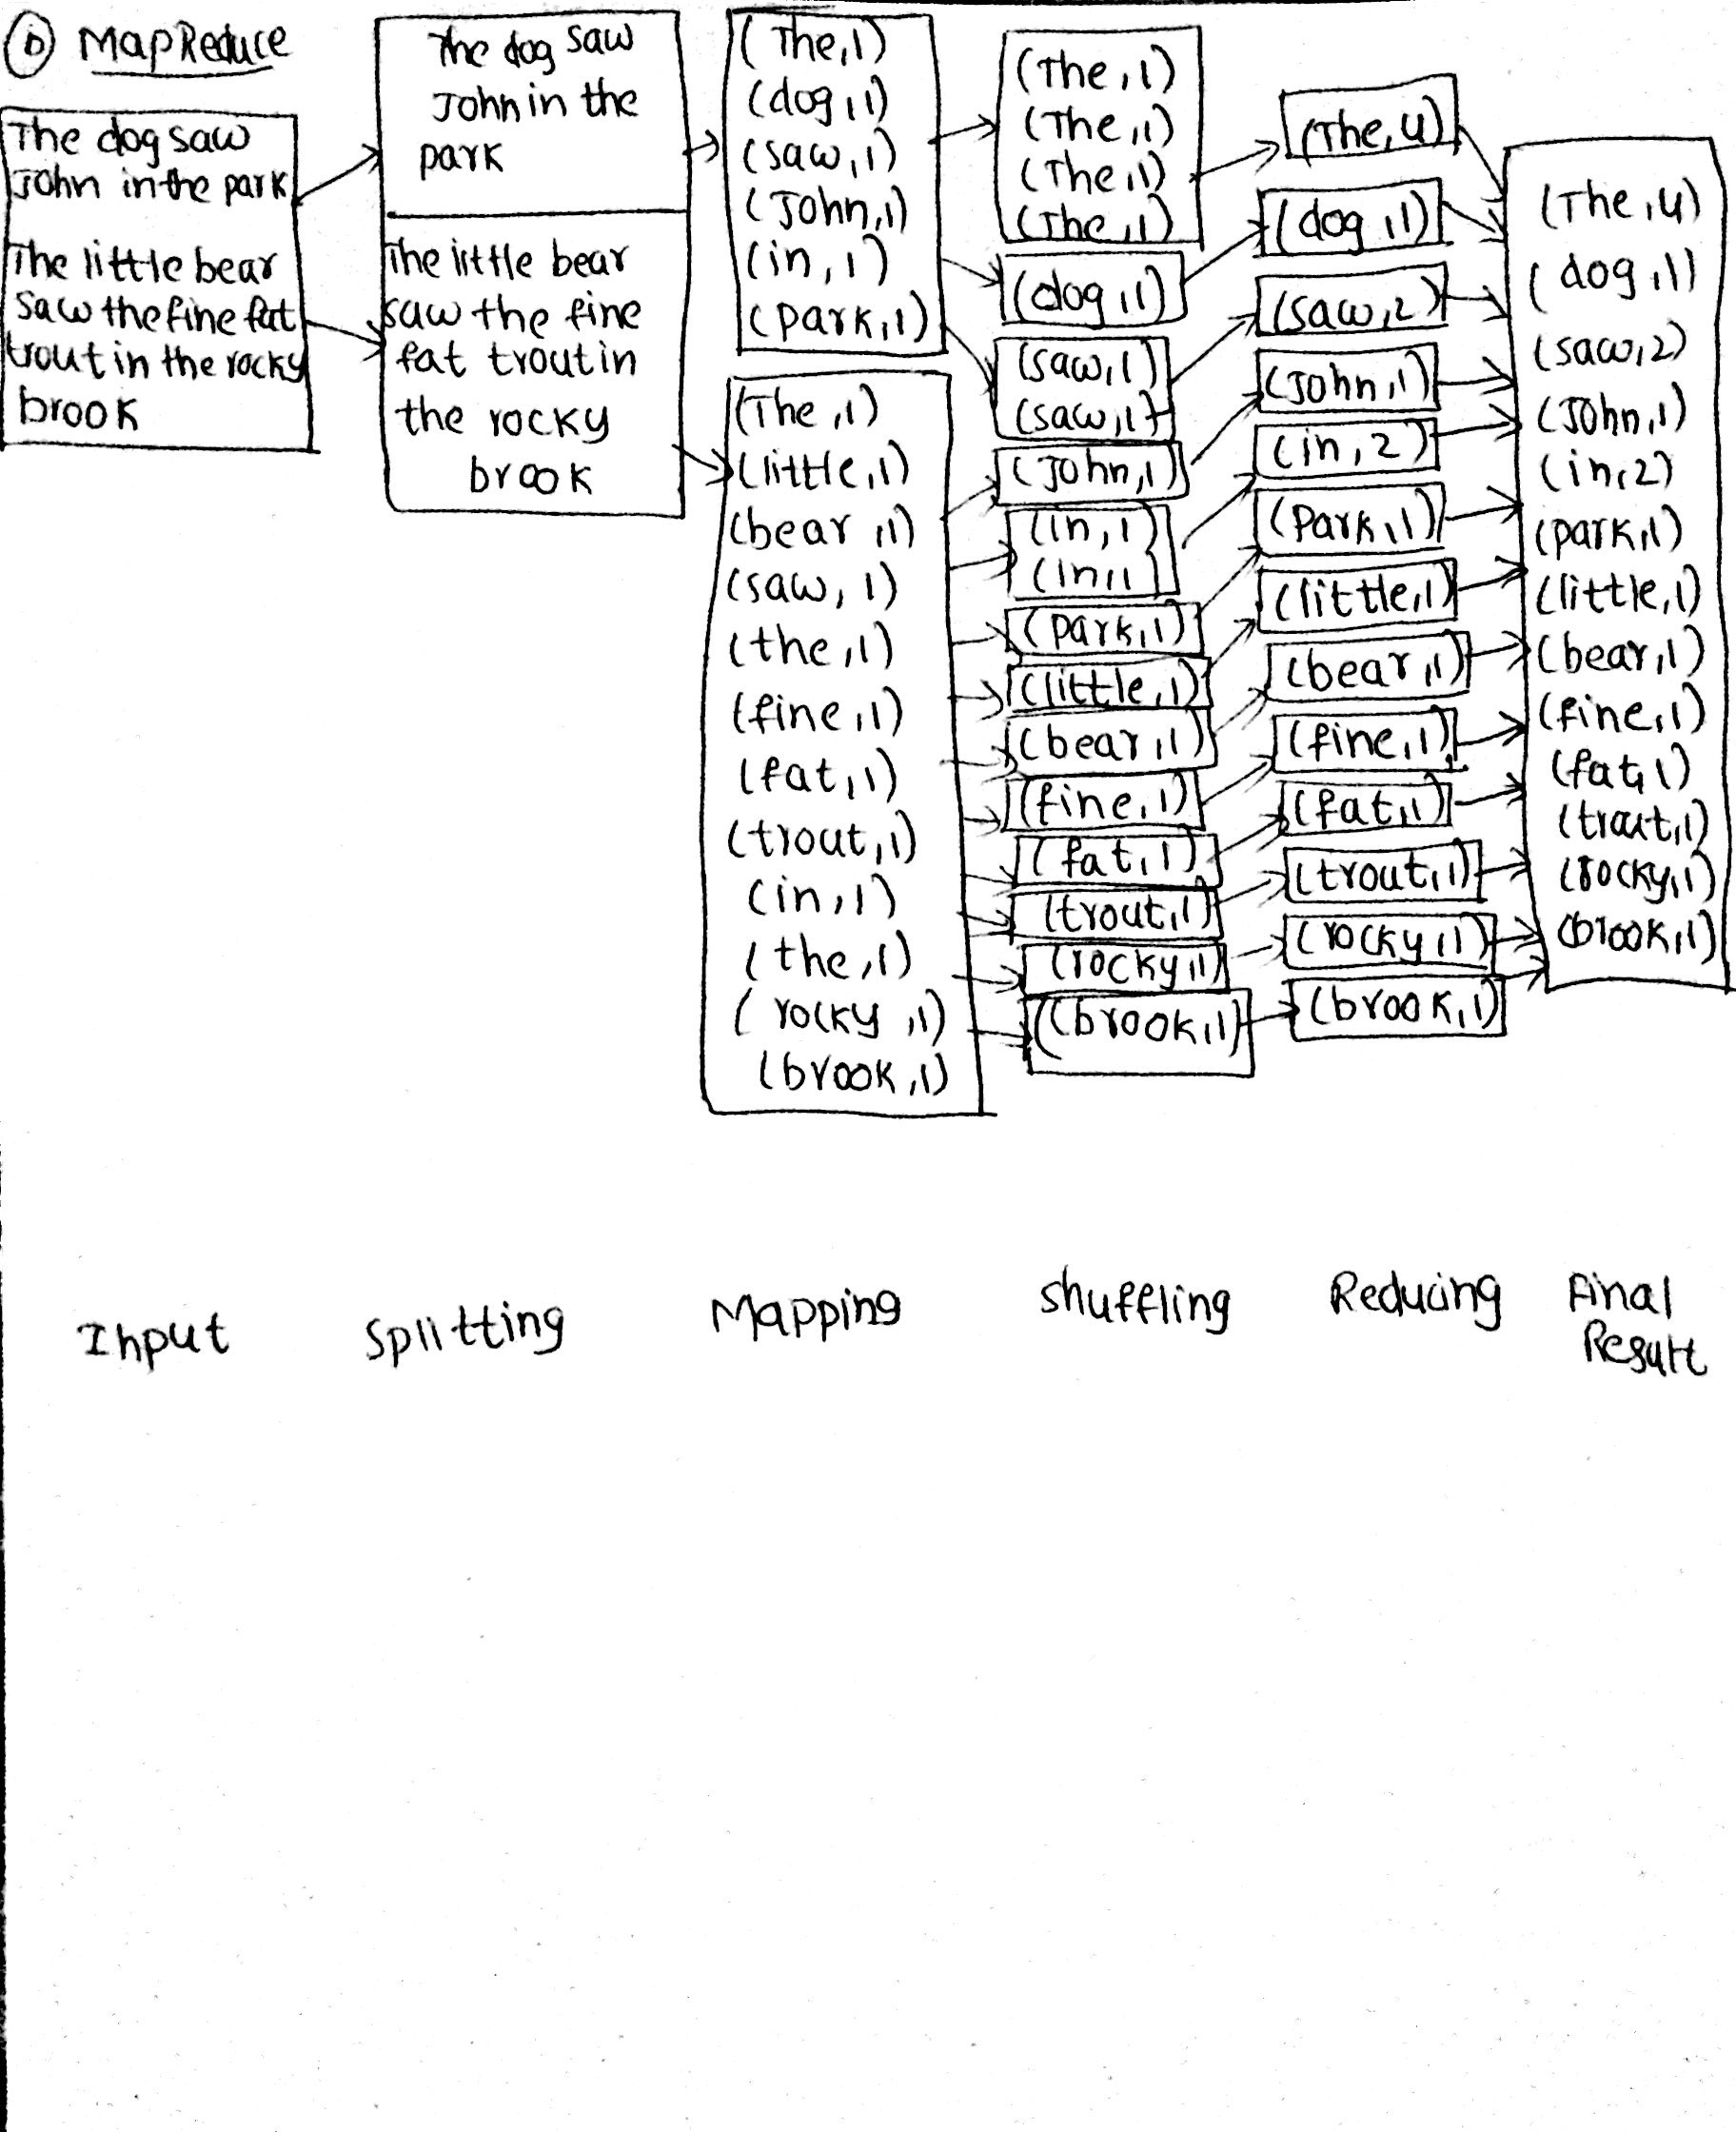 D MapReduce
The dog saw
John in the park
The little bear
saw the fine fat
trout in the rocky
brook
The dog saw
John in the
park
The little bear
saw the fine
fat trout in
the rocky
brook
(The,1)
(dog,1)
(saw,1)
(John,1)
(in,1)
(Park,1)
(The,1)
(little,1)
(bear,1)
(saw,1)
(the,1)
(fine,1)
(fat,1)
(trout,1)
(in,1)
(the,1)
(rocky,1)
(brook,1)
(The,1)
(The,1)
(The,1)
(The,1)
(dog,1)
(saw,1)
(saw,1)
(John,1)
(in,1)
(in,1
(park,1)
(little,1)
(bear,1)
(fine,1)
(fat,1)
(trout,1)
(rocky,1)
(brook,1)
(The,4)
(dog,1)
(saw,2)
(John,1)
(in,2)
(Park,1)
(little,1)
(bear,1)
(fine,1)
(fat,1)
(trout,1)
(rocky,1)
(brook,1)
(The,4)
(dog,1)
(saw,2)
(John,1)
(in,2)
(park,1)
(little,1)
(bear,1)
(fine,1)
(fat,1)
(trout,1)
(rocky,1)
(brook,1)
Input
Splitting
Mapping
shuffling
Reducing
Final
Result